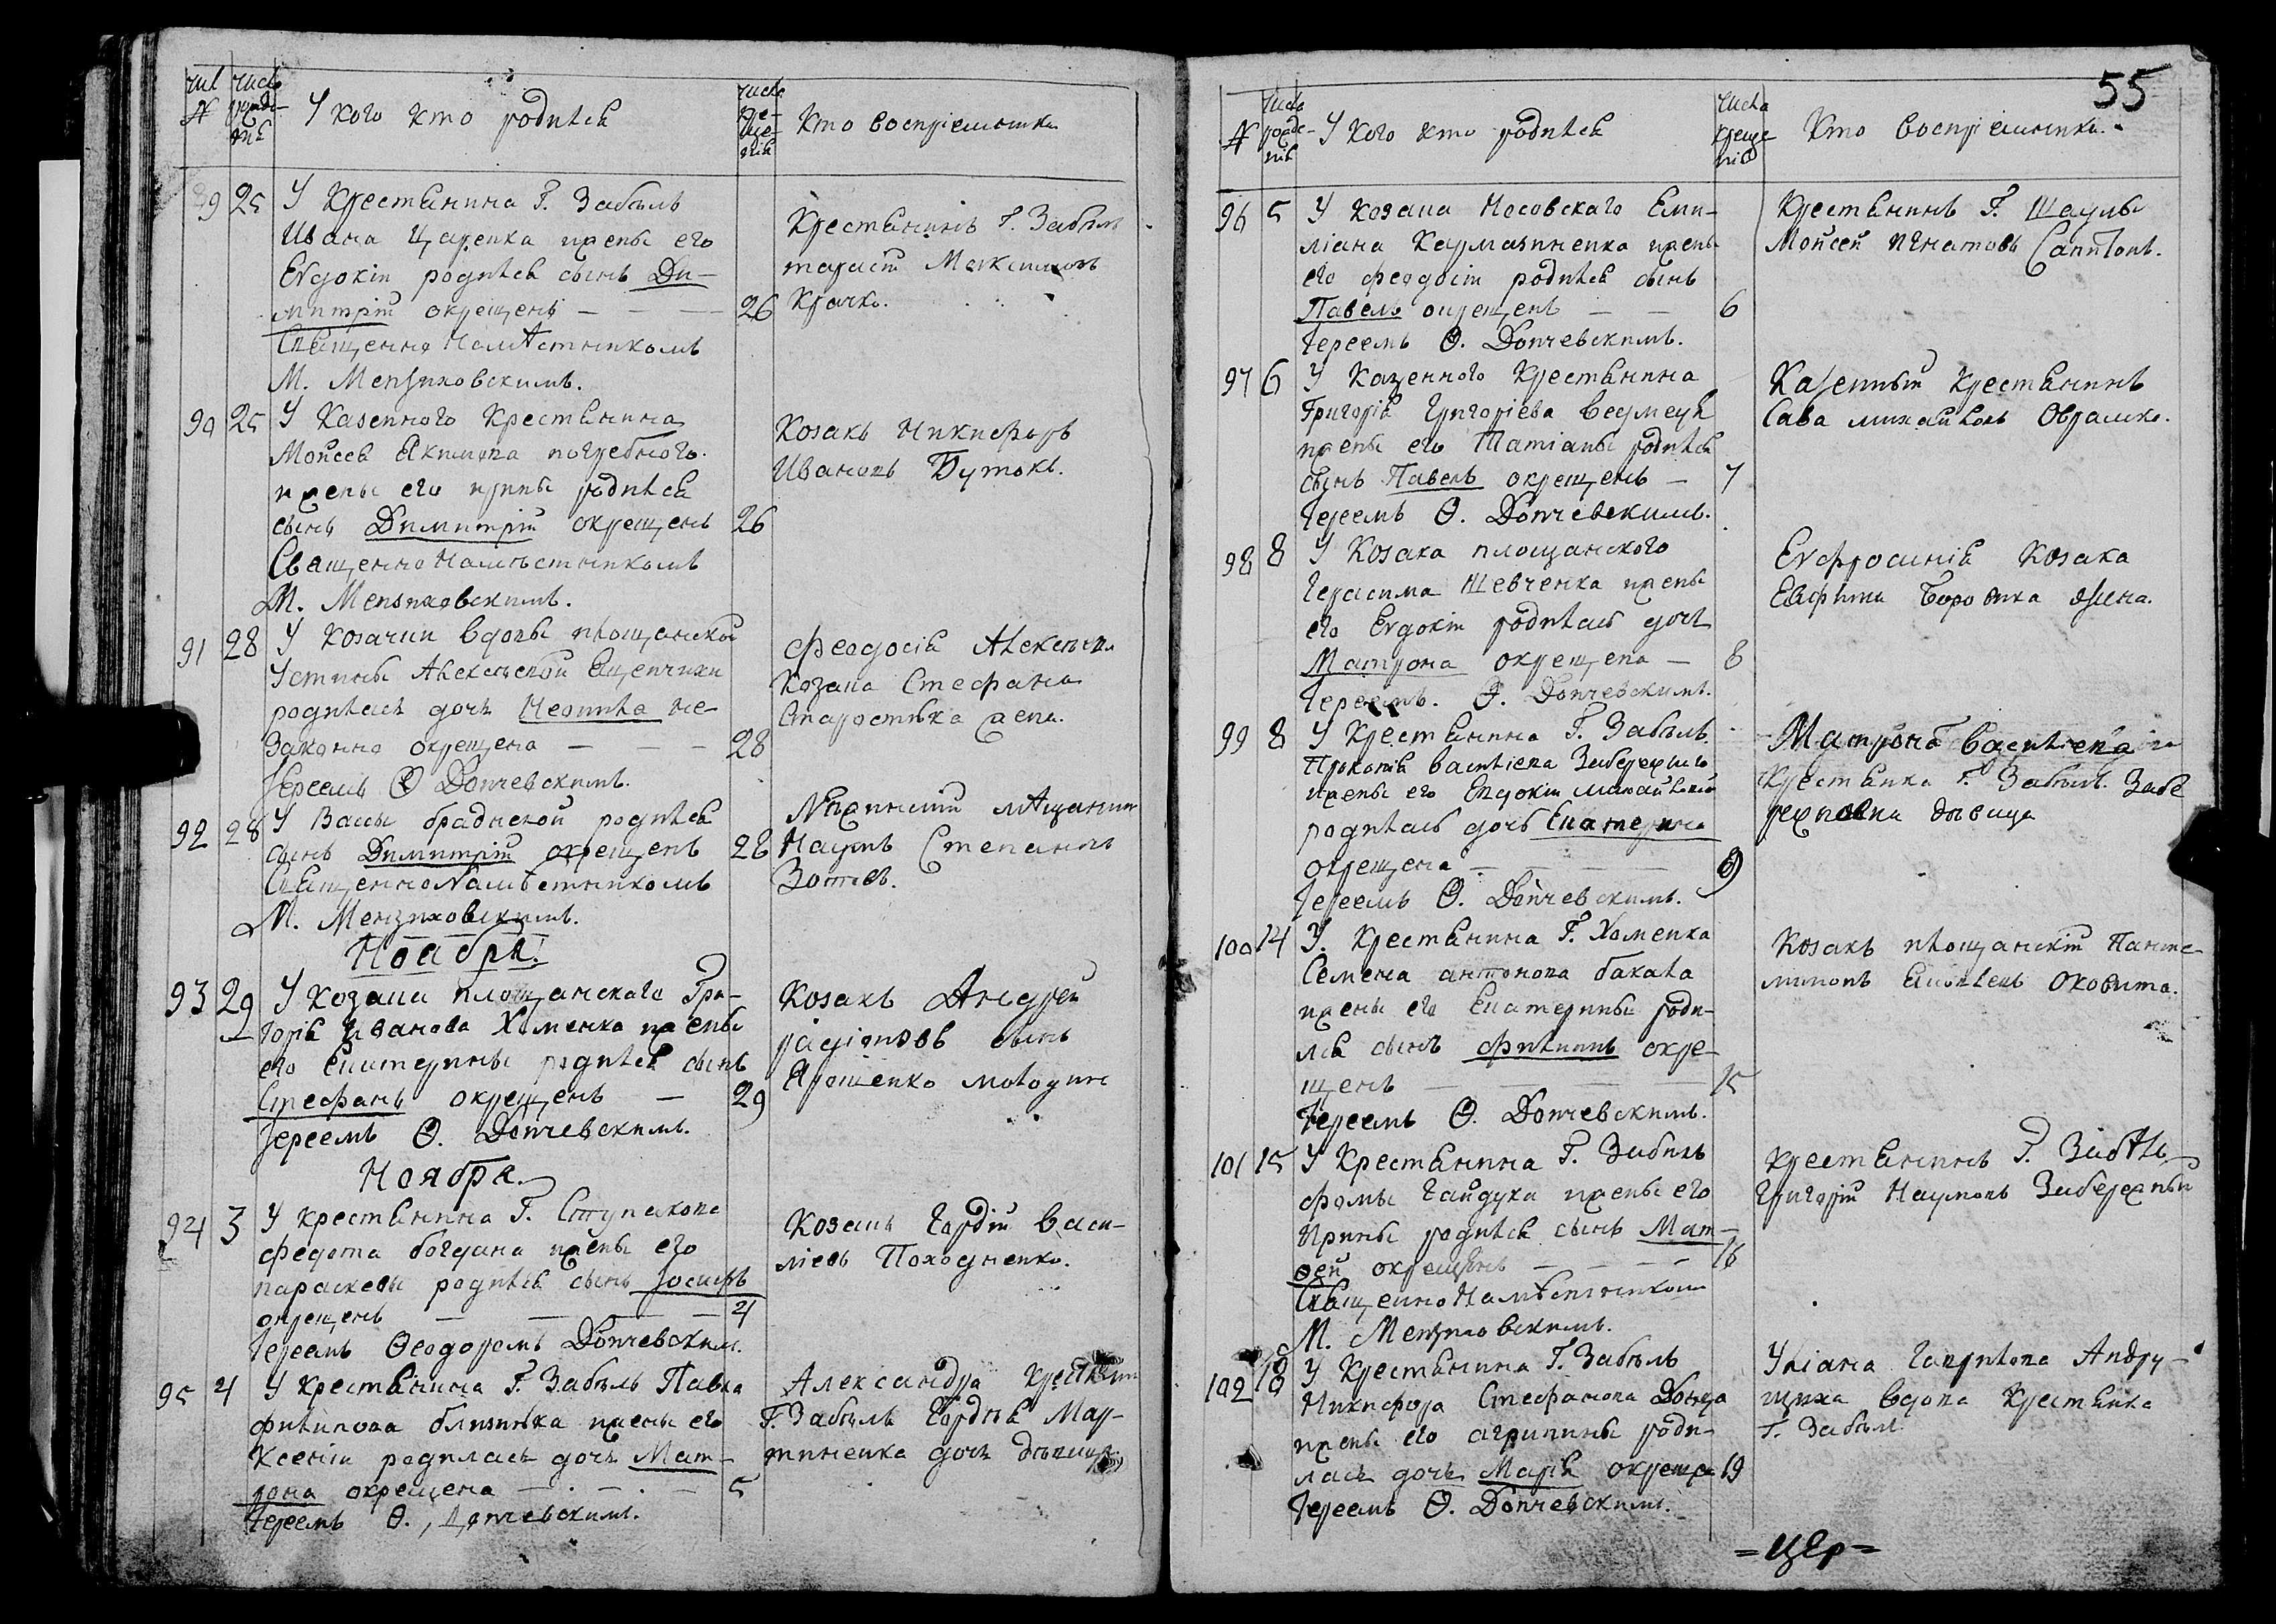 У кого кто родился
Кто воспріемники
25 У Крестянина Г. Забѣлы
Ивана Царенка жены его
Евдокіи родился сынъ Ди-
митрій окрещенъ — — — 26
Священно Намѣстникомъ
М. Мензиховскимъ.
Крестянинъ Г. Забѣлы
тарасій Максимовъ
Крачко.
90 25 У Казенного Крестянина
Мойсея Якимова погребного
жены его ирины родился
сынъ Димитрій окрещенъ 26
Священно Намѣстникомъ
М. Мензиховскимъ.
Козакъ Никифоръ
Ивановъ Бутокъ.
91 28 У Козачки вдовы площанской
Устины Алексѣевой
родилась дочь не-
законно окрещена — — — 28
Іереемъ Ѳ Допчевскимъ.
феодосія Алексѣева
Козака Стефана
жена.
92 28 У Вассы брадской родился
сынъ Димитрій окрещенъ 28
Священно Намѣстникомъ
М. Мензиховскимъ.
Нѣжинскій мѣщанинъ
Наумъ Степановъ
Зотовъ.
Ноабря.
93 29 У козака площанского Гри-
горія Иванова Хоменка жены
его Екатерины родился сынъ
Стефанъ окрещенъ — 29
Іереемъ Ѳ. Допчевскимъ.
Козакъ Андрей
радіоновъ сынъ
Ярошенко молодикъ
Ноября.
94 3 У крестянина Г. Ступакова
федота богдана жены его
параскевы родился сынъ Іосифъ
окрещенъ — — — — 4
Іереемъ Ѳеодоромъ Допчевскимъ.
Козакъ Гордій васи-
ліевъ Походненко.
95 4 У крестянина Г. Забѣлы Павла
филипова близнюка жены его
Ксеніи родилась дочь Мат-
рона окрещена — . — . — 5
Іереемъ Ѳ. Допчевскимъ.
Александра
Г. Забѣлы Гордѣя Мар-
тиненка дочь дѣвица
55
N У кого кто родился
Кто воспріемники.
96 5 У козака Носовскаго Еми-
ліана Кармазиненка жены
его феодосіи родился сынъ
Павелъ окрещенъ — — 6
Іереемъ Ѳ. Допчевскимъ.
Крестянинъ Г.
Мойсей игнатовъ
97 6 У Казенного Крестянина
Григорія Григоріева ведмедя
жены его Татіаны родился
сынъ Павелъ окрещенъ — 7
Іереемъ Ѳ. Допчевскимъ.
Казенный крестянинъ
Сава михайловъ Оврамко.
98 8 У Козака площанского
Герасима Шевченка жены
его Евдокіи родилась дочь
Матрона окрещена — 8
Іереемъ. Ѳ. Допчевскимъ.
Евфросинія Козака
Евфима жена.
99 8 У Крестянина Г. Забѣлы
Прокопія василіева Забережного
жены его Евдокіи михайловой
родилась дочь Екатерина
окрещена — — — 9
Іереемъ Ѳ. Допчевскимъ.
Матрона василіева
Крестянка Г. Забѣлы. Забе
режновна дѣвица
100 14 У. Крестянина Г. Хоменка
Семена антонова бакала
жены его Екатерины роди-
лся сынъ филипъ окре-
щенъ — — — — 15
Іереемъ Ѳ. Допчевскимъ.
Козакъ площанскій Панте-
лимонъ Оковита.
101 15 У Крестянина Г. Забѣлы
фомы Гайдука жены его
Ирины родился сынъ Мат-
ѳей окрещенъ — — — — 16
Священно Намѣстникомъ
М. Мензиховскимъ.
Крестянинъ Г. Забѣлы
Григорій Наумовъ Забережный
102 18 У Крестянина Г. Забѣлы
Никифора Стефанова Донца
жены его агрипины роди-
лась дочь Марія окрещена 19
Іереемъ Ѳ. Допчевскимъ.
Уліана Гаврилова Андру-
щиха вдова Крестянка
Г. Забѣлы
=цер=